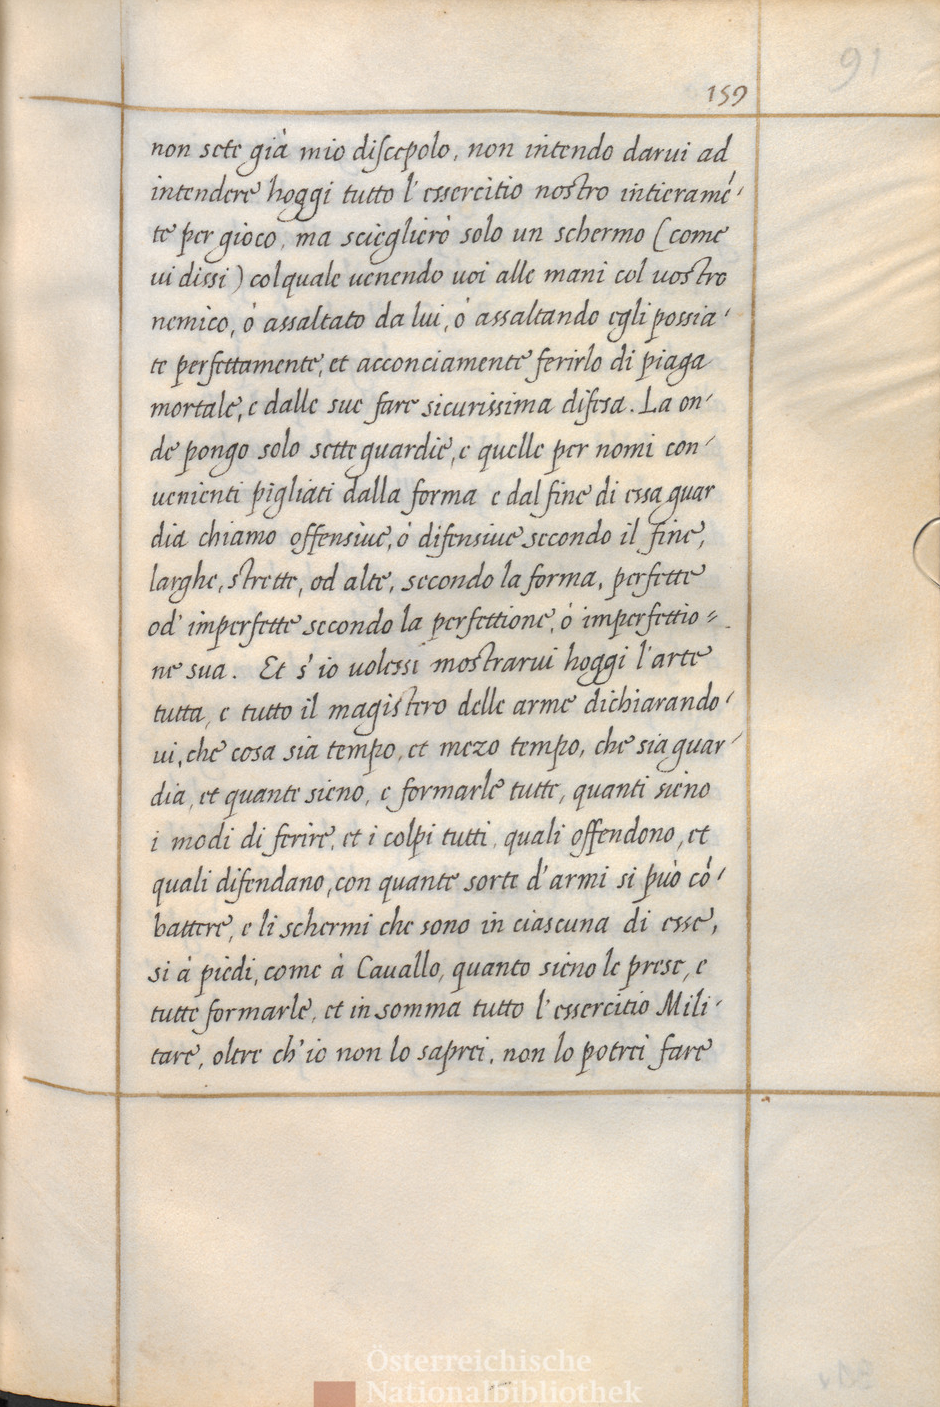 91
159
non sete già mio discepolo, non intendo darui ad
intendere hoggi tutto l'essercitio nostro intieramẽ-
te per gioco, ma scieglierò solo un schermo (come
ui dissi) col quale uenendo uoi alle mani col uostro
nemico, ò assaltato da lui, ò assaltando egli possia-
te perfettamente, et acconciamente ferirlo di piaga
mortale, e dalle sue fare sicurissima difesa. La on-
de pongo solo sette guardie, e quelle per nomi con-
uenienti pigliati dalla forma e dal fine di essa guar
dia chiamo offensiue, ò difensiue secondo il fine,
larghe, strette, od alte, secondo la forma, perfette
od' imperfette secondo la perfettione, ò imperfettio=
ne sua. Et s'io uolessi mostrarui hoggi l'arte
tutta, e tutto il magistero delle arme dichiarando-
ui, che cosa sia tempo, et mezo tempo, che sia guar-
dia, et quante sieno, e formarle tutte, quanti sieno
i modi di ferire, et i colpi tutti, quali offendono, et
quali difendano, con quante sorte d'armi si può cõ-
battere, e li schermi che sono in ciascuna di esse,
si à piedi, come à Cauallo, quanto sieno le prese, e
tutte formarle, et in somma tutto l'essercitio Mili-
tare, oltre ch'io non lo saprei, non lo potrei fare
Österreichische
Nationalbibliothek